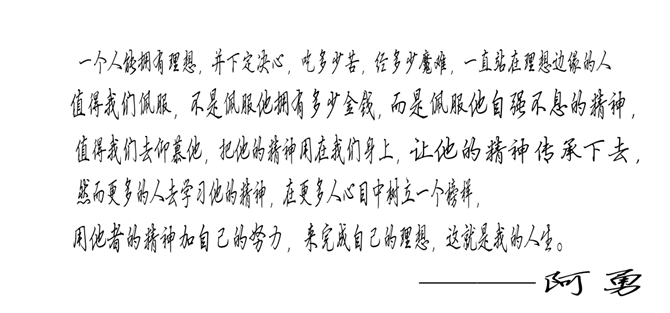 一个人能拥有理想，并下定决心，吃多少苦，经多少魔难，一直站在理想边缘的人
值得我们佩服，不是佩服他拥有多少金钱，而是佩服他自强不息的精神，
值得我们去仰慕他，把他的精神用在我们身上，让他的精神传承下去，
然而更多的人去学习他的精神，在更多人心目中树立一个榜样，
用他者的精神加自己的努力，来完成自己的理想，这就是我的人生。
————阿勇